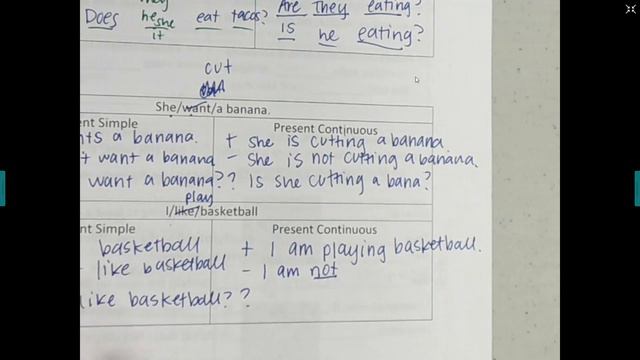 they Are They eating?
Does he she it eat tacos? Is he eating?
cut
She/want/a banana.
ent Simple Present Continuous
nts a banana. + She is cutting a banana
t want a banana - She is not cutting a banana.
want a banana? ? Is she cutting a bana?
play
I/like/basketball
Simple Present Continuous
basketball + I am playing basketball.
- like basketball - I am not
like basketball? ?